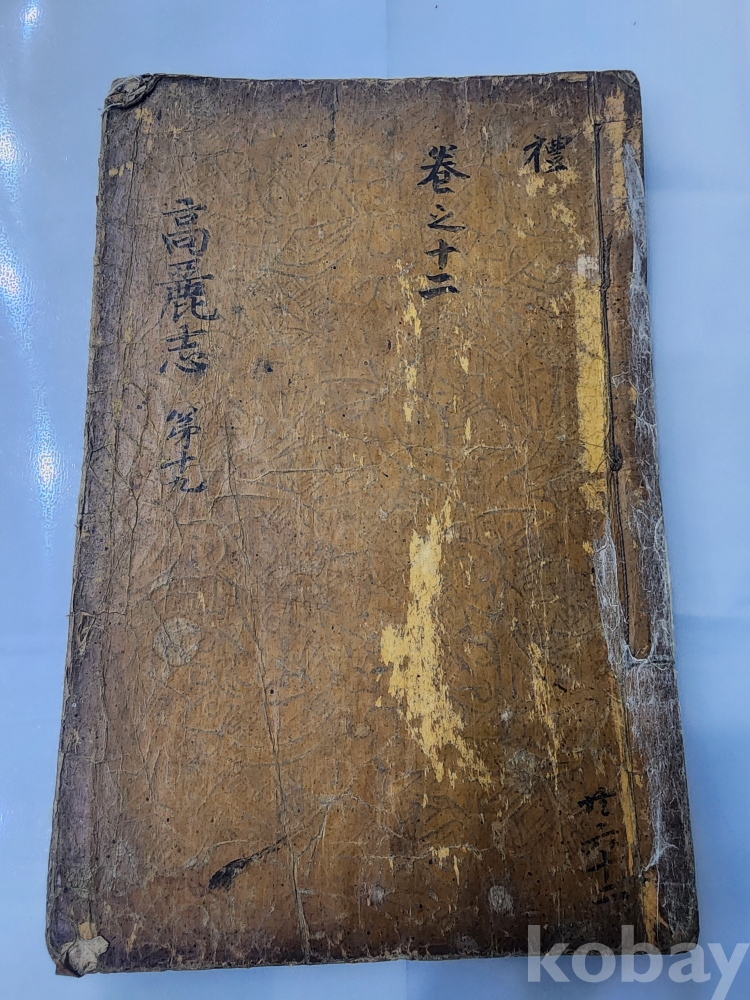 禮
卷之十二
高麗志 第十九
共六十二
kobay